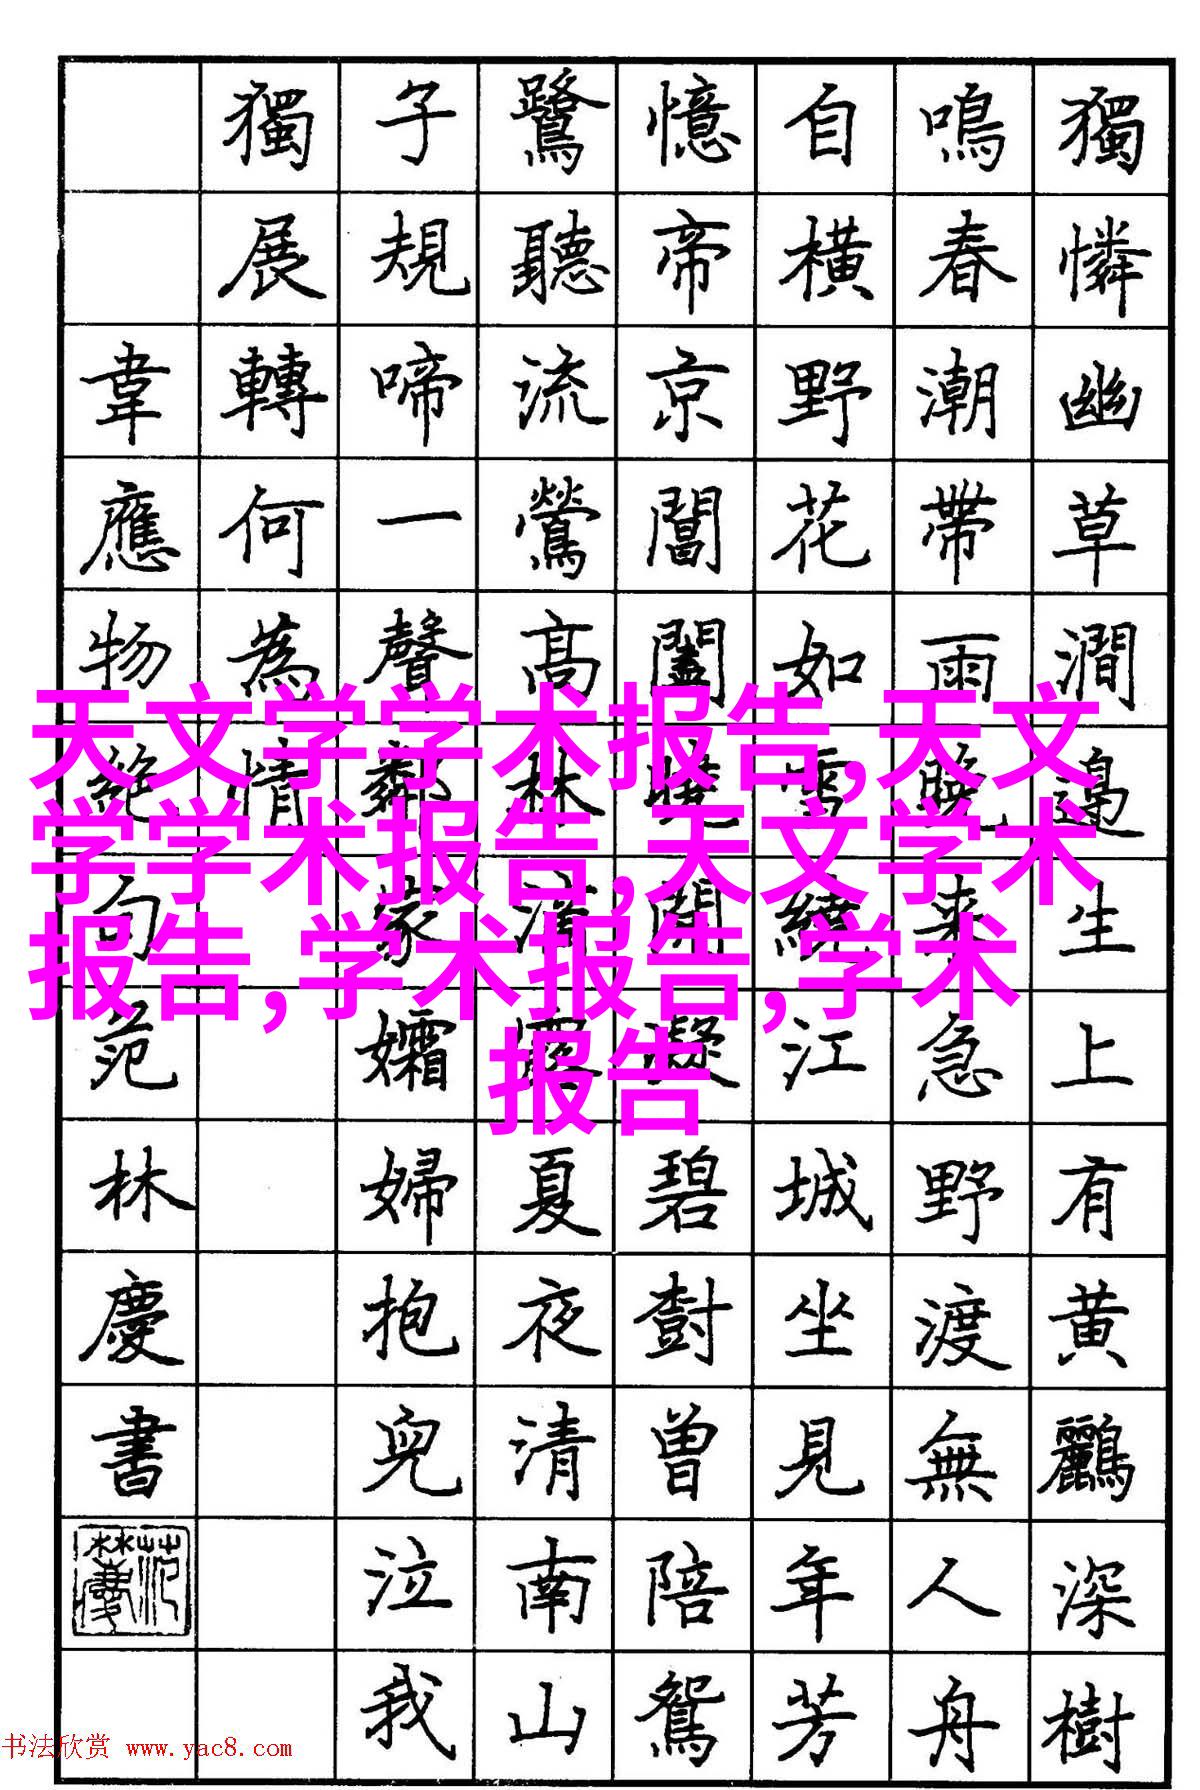 獨憐幽草澗邊生上有黄鸝深樹
鳴春潮帶雨晚来急野渡無人舟
自横野花如雪繞江城坐見年芳
憶帝京閶闔曉開凝碧樹曾陪鴛
鷺聽流鶯高林滴露夏夜清南山
子規啼一聲鄰家孀婦抱兒泣我
獨展轉何為情
韋應物絕句范林慶書
范林慶
天文学学术报告,天文
学学术报告,天文学术
报告,学术报告,学术
报告
书法欣赏 www.yac8.com